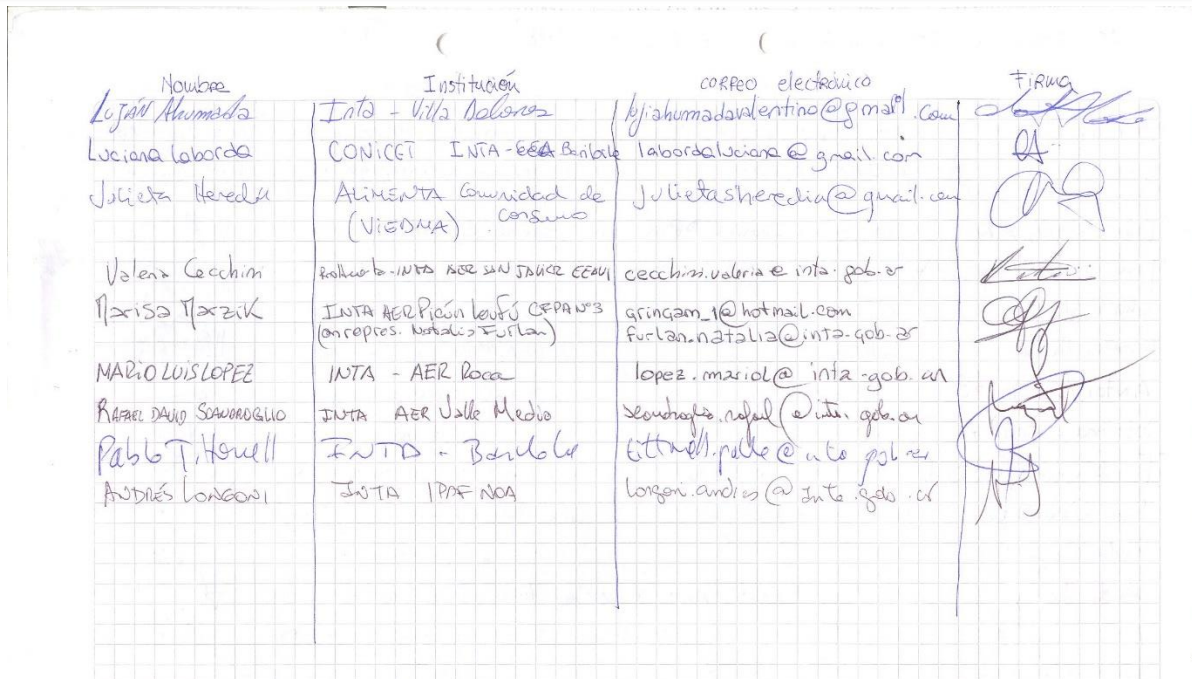 Nombre Institución correo electrónico Firma
Luján Ahumada Inta - Villa Dolores lujiahumadavalentino@gmail.com
Luciana Laborda CONICET INTA-EEA Bariloche labordaluciana@gmail.com
Julieta Heredia ALIMENTA Comunidad de julietasheredia@gmail.com
(VIEDMA) Consumo
Valeria Cecchini INTA AER SAN JAVIER EEAVI cecchini.valeria@inta.gob.ar
Marisa Marzik INTA AER Picún Leufú CEPA Nº3 gringam_1@hotmail.com
(en repres. Natalia Furlan) furlan.natalia@inta.gob.ar
MARIO LUIS LOPEZ INTA - AER Roca lopez.mariol@inta.gob.ar
RAFAEL DAVID SCANDROGLIO INTA AER Valle Medio scandroglio.rafael@inta.gob.ar
Pablo INTA - Bariloche
ANDRÉS LONGONI INTA IPAF NOA longoni.andres@inta.gob.ar